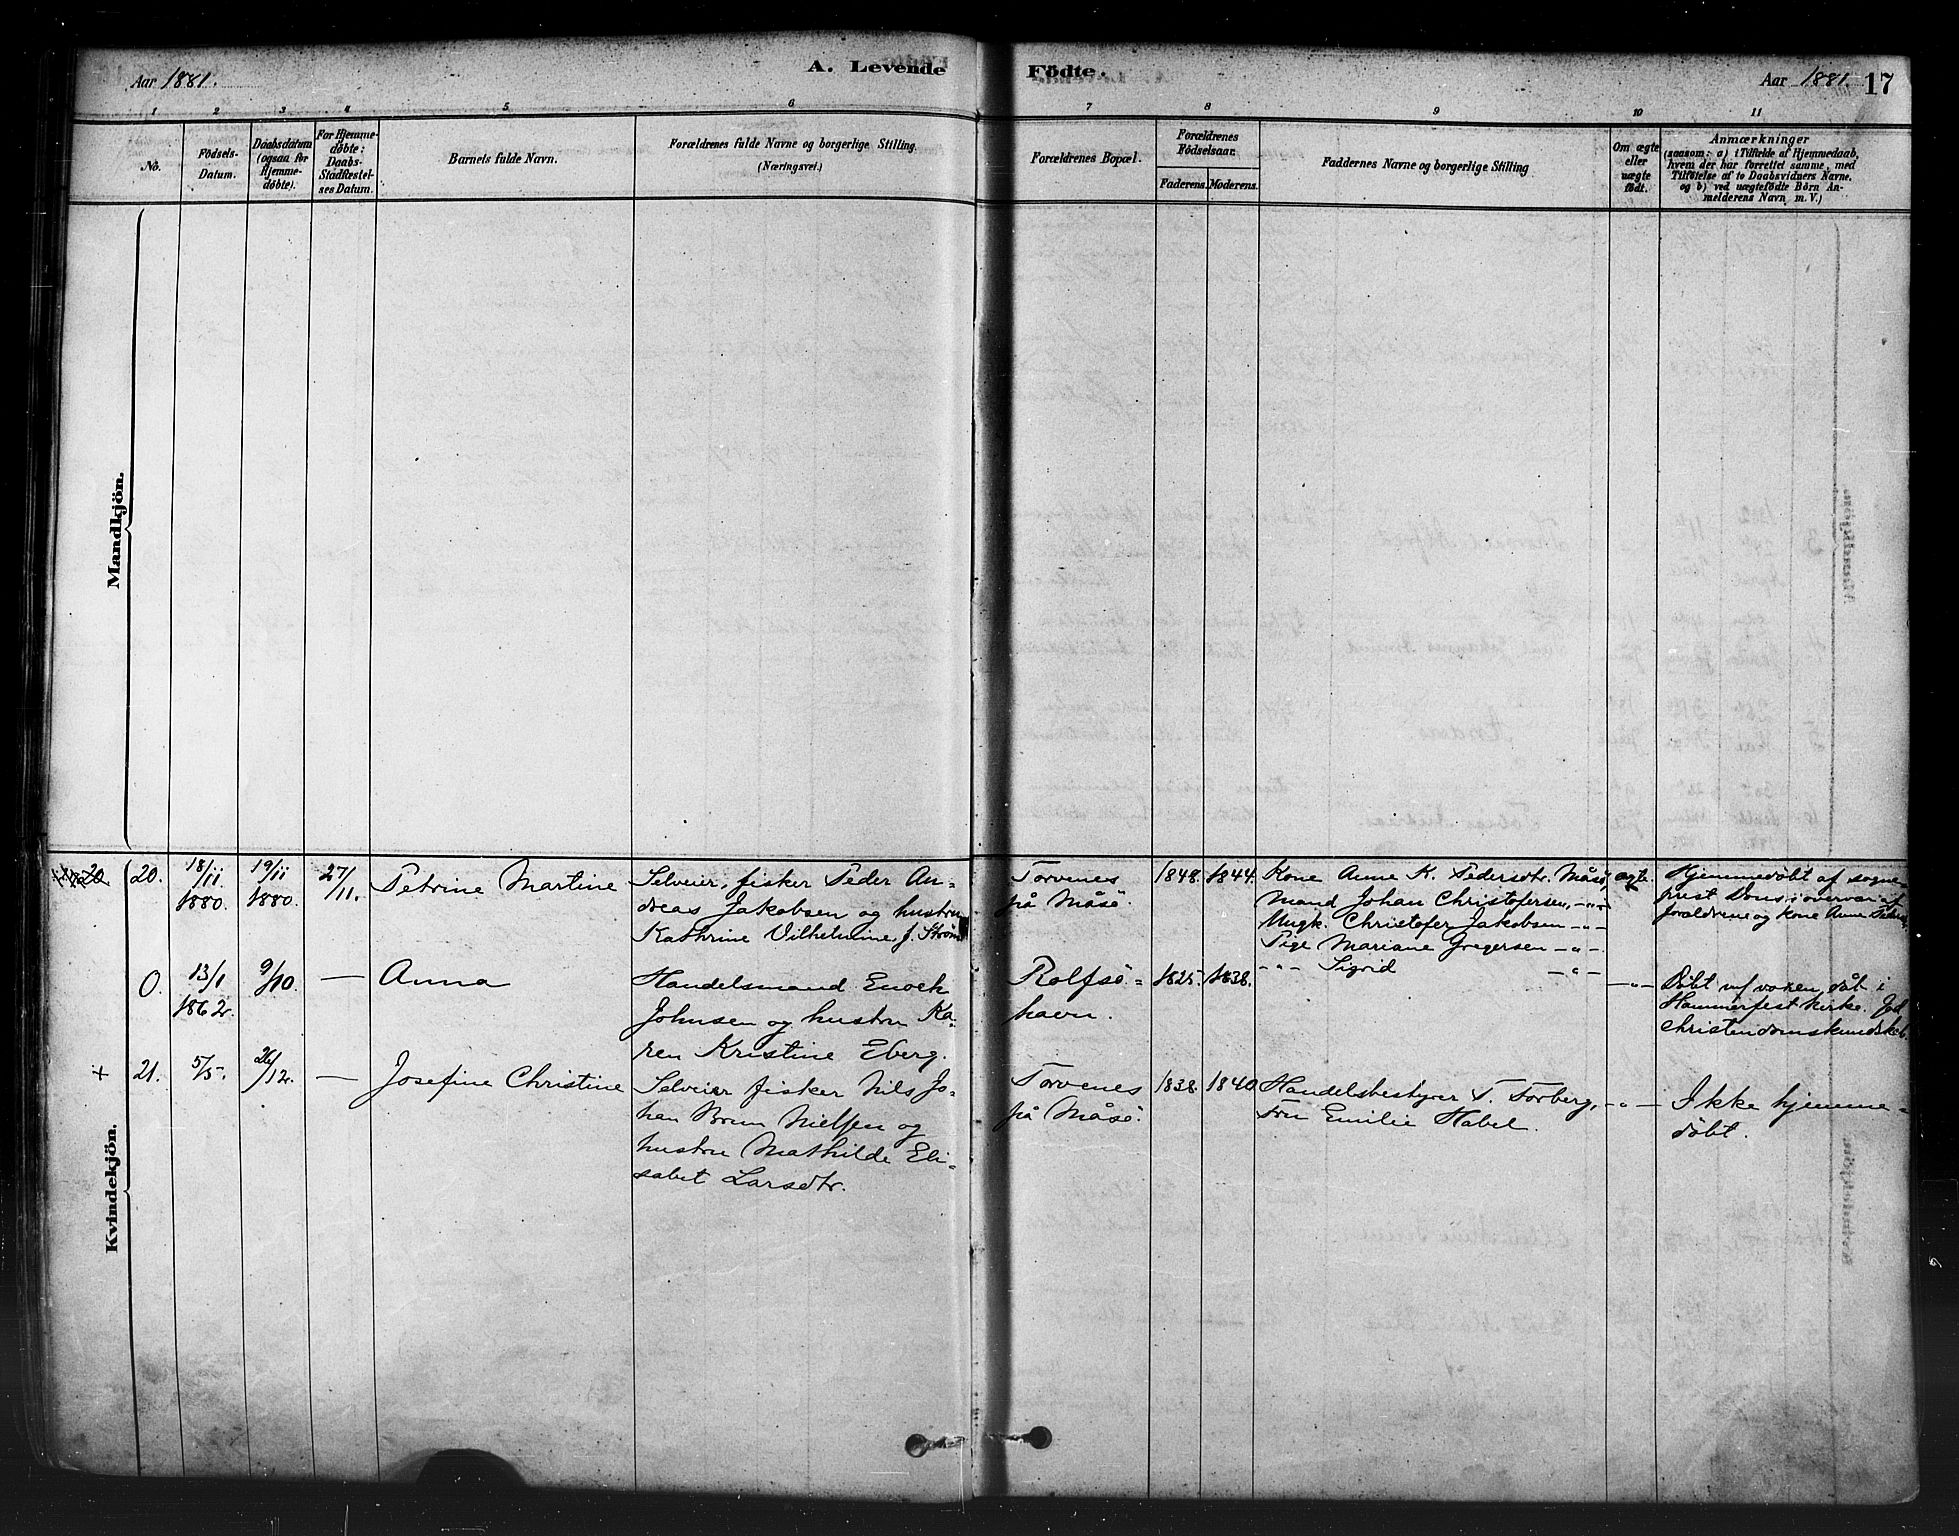 Aar 1881.
A. Levende
Födte.
Aar 1881.
17
1 2 3 4 5 6 7 8 9 10 11
No.
Födsels-
Datum.
Daabsdatum
(ogsaa for
Hjemme-
døbte).
For Hjemme-
døbte:
Daabs-
Stadfæstel-
ses Datum.
Barnets fulde Navn.
Forældrenes fulde Navne og borgerlige Stilling.
(Næringsvei.)
Forældrenes Bopæl.
Forældrenes
Födselsaar.
Faderens. Moderens.
Faddernes Navne og borgerlige Stilling
Om ægte
eller
uægte
født.
Anmærkninger
(saasom: a) i Tilfælde af Hjemmedaab,
hvem der har forrettet samme, med
Tilføielse af to Daabsvidners Navne.
og b) ved uægtefödte Börn An-
melderens Navn m. V.)
Mandkjön.
Kvindekjön.
20.
18/11
1880.
19/11
1880.
27/11.
Petrine Martine
Selveier, fisker Peder An-
dreas Jakobsen og hustru
Kathrine Vilhelmine, f. Strøm
Torvenes
på Måsö.
1848. 1844.
Kone Anne K. Pedersdtr. Måsö,
Mand Johan Christofersen, -"-
Ungk. Christofer Jakobsen -"-
Pige Mariane Gregersen -"-
-"- Sigrid -"-
ægte.
Hjemmedöbt af sogne-
prest Dons i overvær af
forældrene og kone Anne
0.
13/1
1862.
9/10.
—
Anna
Handelsmand Enoch
Johnsen og hustru Ka-
ren Kristine Eberg.
Rolfsö-
havn.
1825. 1838.
-"-
Döbt dåb i
Hammerfest kirke.
christendomskundskab.
+ 21.
5/5.
26/12.
—
Josefine Christine
Selveier fisker Nils Jo-
han Brun Nielsen og
hustru Mathilde Eli-
sabet Larsdtr.
Torvenes
på Måsö.
1838. 1840.
Handelsbestyrer T. Torberg,
Fru Emilie Habel.
-"-
Ikke hjemme-
döbt.